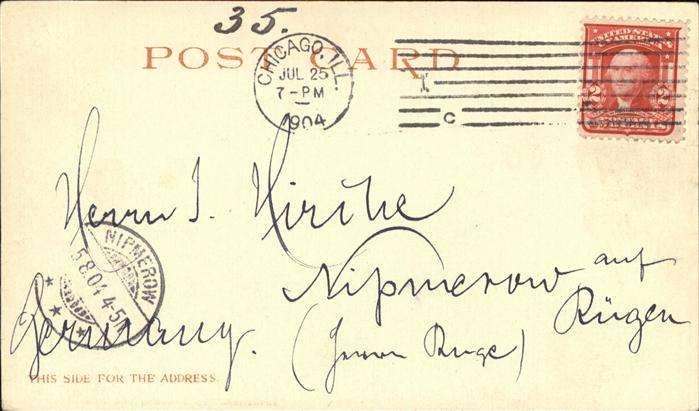 35.
POST CARD
CHICAGO, ILL.
JUL 25
7-PM
1904
C
UNITED STATES
OF AMERICA
2 2
Herrn J. Hirthe
NIPMEROW
5 8.04 4-5N
Nipmerow auf
Rügen
Germany.
THIS SIDE FOR THE ADDRESS